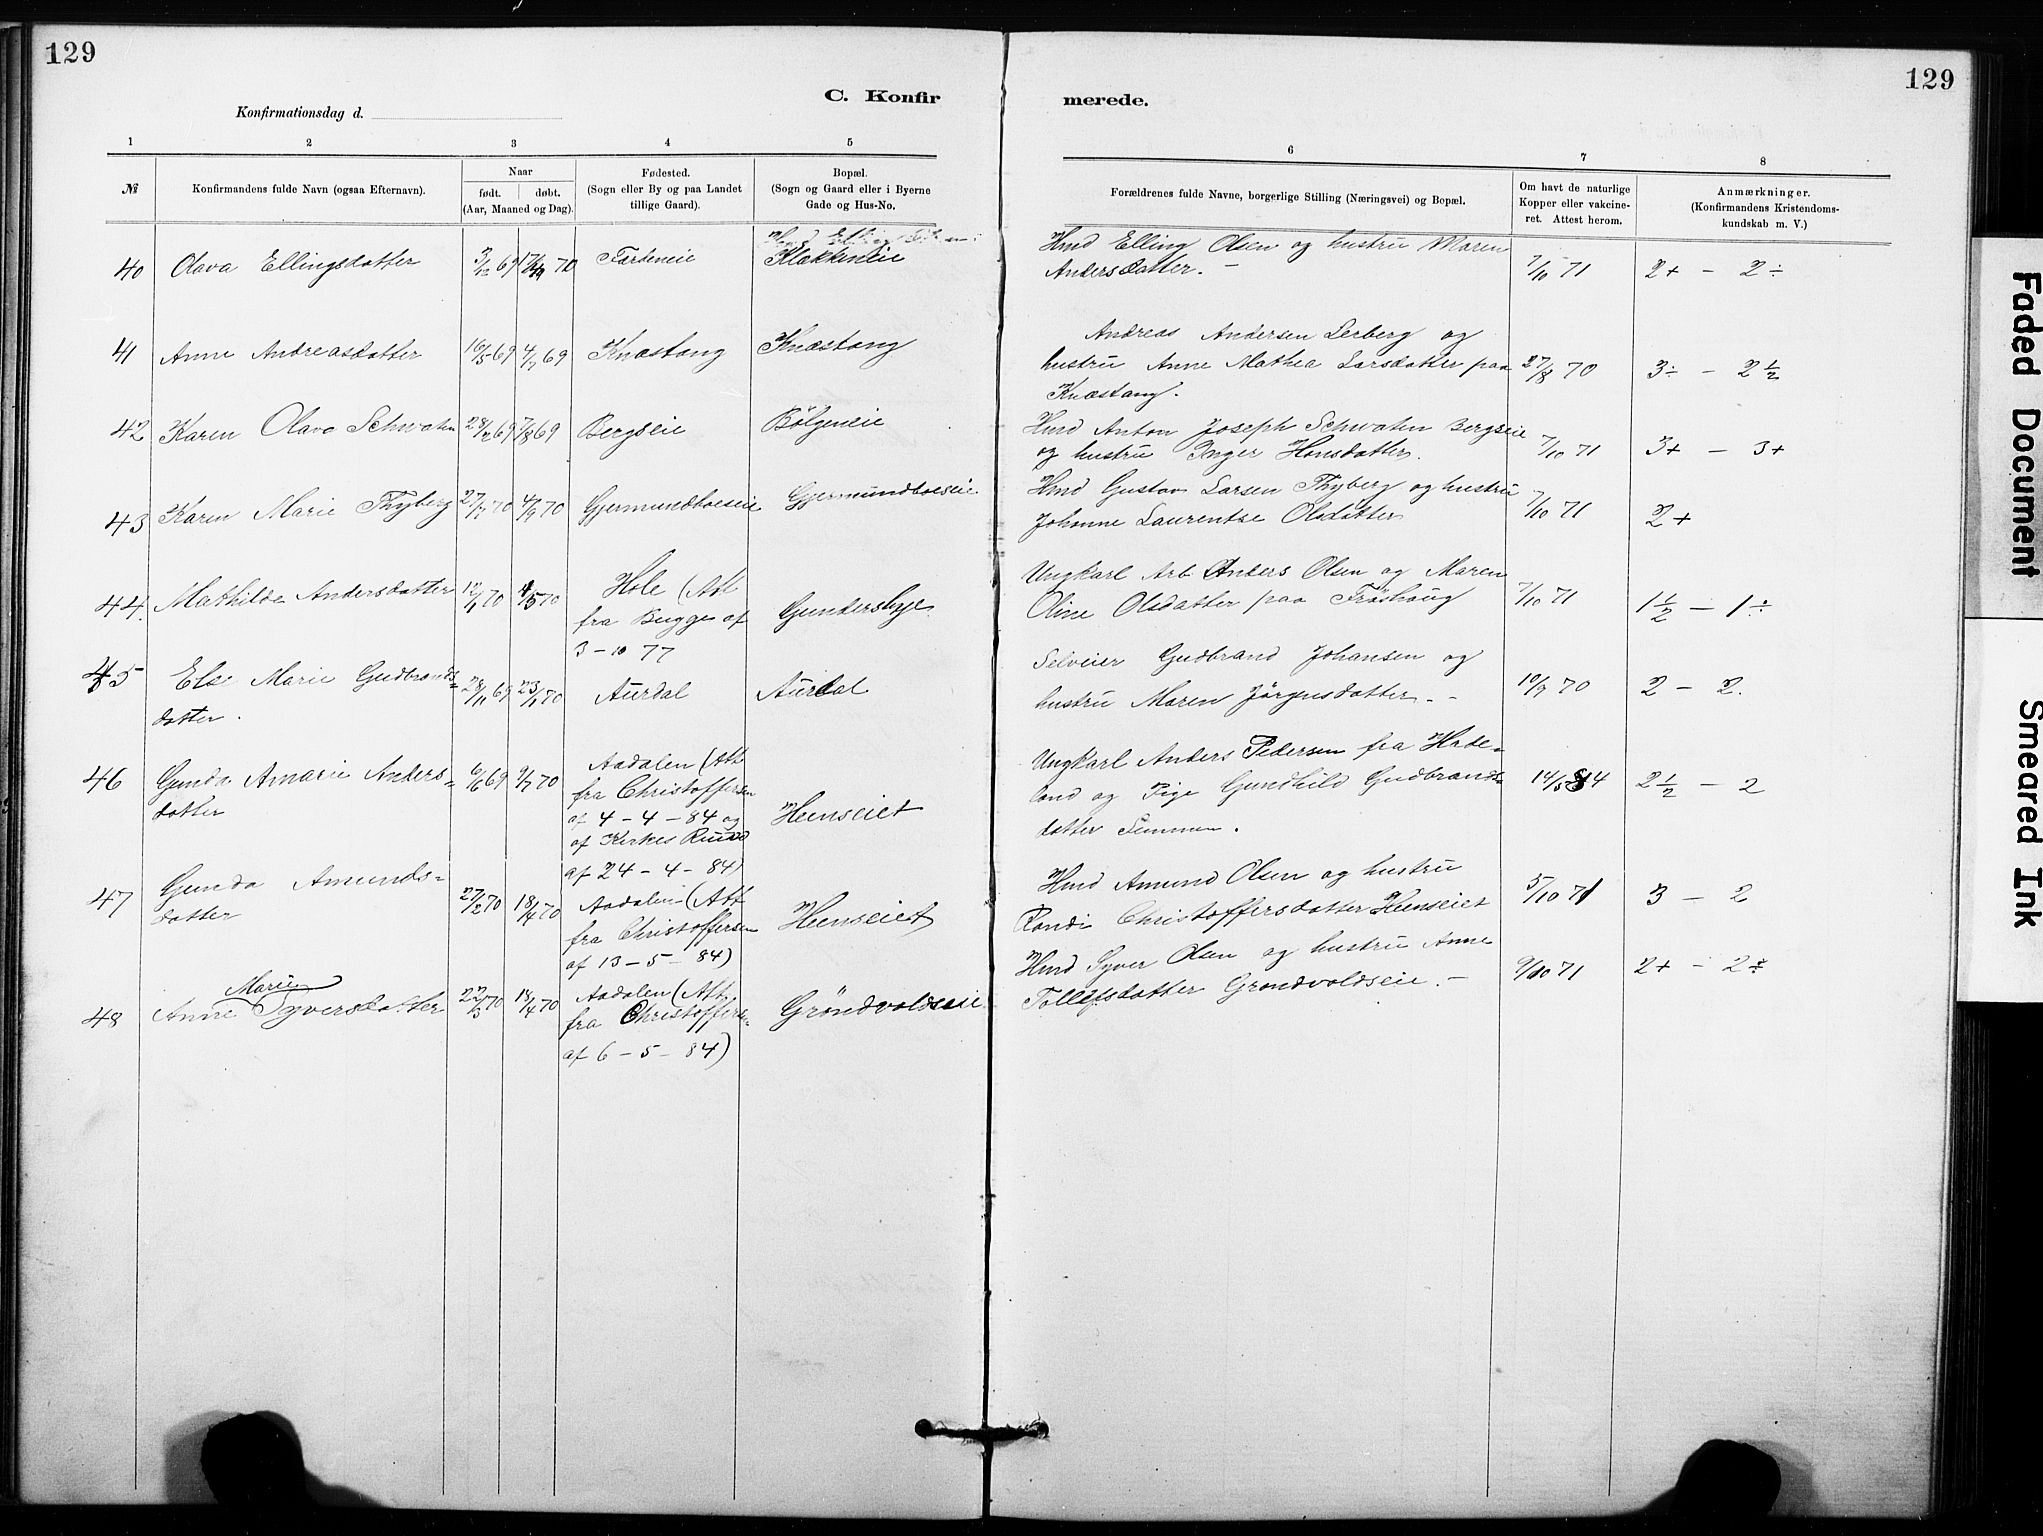 129
129
C. Konfir
merede.
Konfirmationsdag d.
1 2 3 4 5 6 7 8
№
Konfirmandens fulde Navn (ogsaa Efternavn).
Naar
født. døbt.
(Aar, Maaned og Dag).
Fødested.
(Sogn eller By og paa Landet
tillige Gaard).
Bopæl.
(Sogn og Gaard eller i Byerne
Gade og Hus-No.
Forældrenes fulde Navne, borgerlige Stilling (Næringsvei) og Bopæl.
Om havt de naturlige
Kopper eller vakcine-
ret. Attest herom.
Anmærkninger.
(Konfirmandens Kristendoms-
kundskab m. V.)
40 Olava Ellingsdatter 3/12 69 70 Klækkeneie
Hmd Elling Olsen og hustru Maren
Andersdatter. –
7/10 71 2+ – 2÷
41 Anne Andreasdatter 16/5 69 4/7 69 Knæstang Knæstang
Andreas Andersen Lerberg og
hustru Anne Mathea Larsdatter paa
Knæstang.
27/8 70 3÷ – 2 1/2
42 Karen Olava Schwahn 69 7/8 69 Bergseie Bølgeneie
Hmd Anton Joseph Schwahn Bergseie
og hustru Inger Hansdatter.
7/10 71 3+ – 3+
43 Karen Marie Thyberg 70 4/9 70 Gjermundboeseie Gjermundboeseie
Hmd Gustav Larsen Thyberg og hustru
Johanne Laurentse Olsdatter
7/10 71 2+
44. Mathilde Andersdatter 12/1 70 70
Hole (Att
fra Bugge af
3–10 77
Gundershye
Ungkarl Arb. Anders Olsen og Maren
Oline Olsdatter paa Frøshaug
7/10 71 1 1/2 – 1÷
45 Else Marie Gudbrands=
datter.
28/11 69 23/1 70 Aurdal Aurdal
Selveier Gudbrand Johansen og
hustru Maren Jørgensdatter. –
10/9 70 2 – 2.
46 Gunda Amarie Anders=
datter
6/6 69 9/7 70
Aadalen (Att
fra Christoffersen
af 4–4–84 og
af Kirkes Ruud
af 24–4–84)
Heenseiet
Ungkarl Anders Pedersen fra Hade-
land og Pige Gundhild Gudbrands
datter Semmen.
14/5 84 2 1/2 – 2
47 Gunda Amunds=
datter
27/2 70 18/4 70
Aadalen (Att
fra Christoffersen
af 13–5–84)
Heenseiet
Hmd Amund Olsen og hustru
Randi Christoffersdatter Heenseiet
5/10 71 3 – 2
48 Marie
Anne Syversdatter
22/3 70 18/4 70
Aadalen (Att
fra Christoffersen
af 6–5–84)
Grøndvoldseie
Hmd Syver Olsen og hustru Anne
Tollefsdatter Grøndvoldseie. –
9/10 71 2+ – 2÷
Faded Document
Smeared Ink